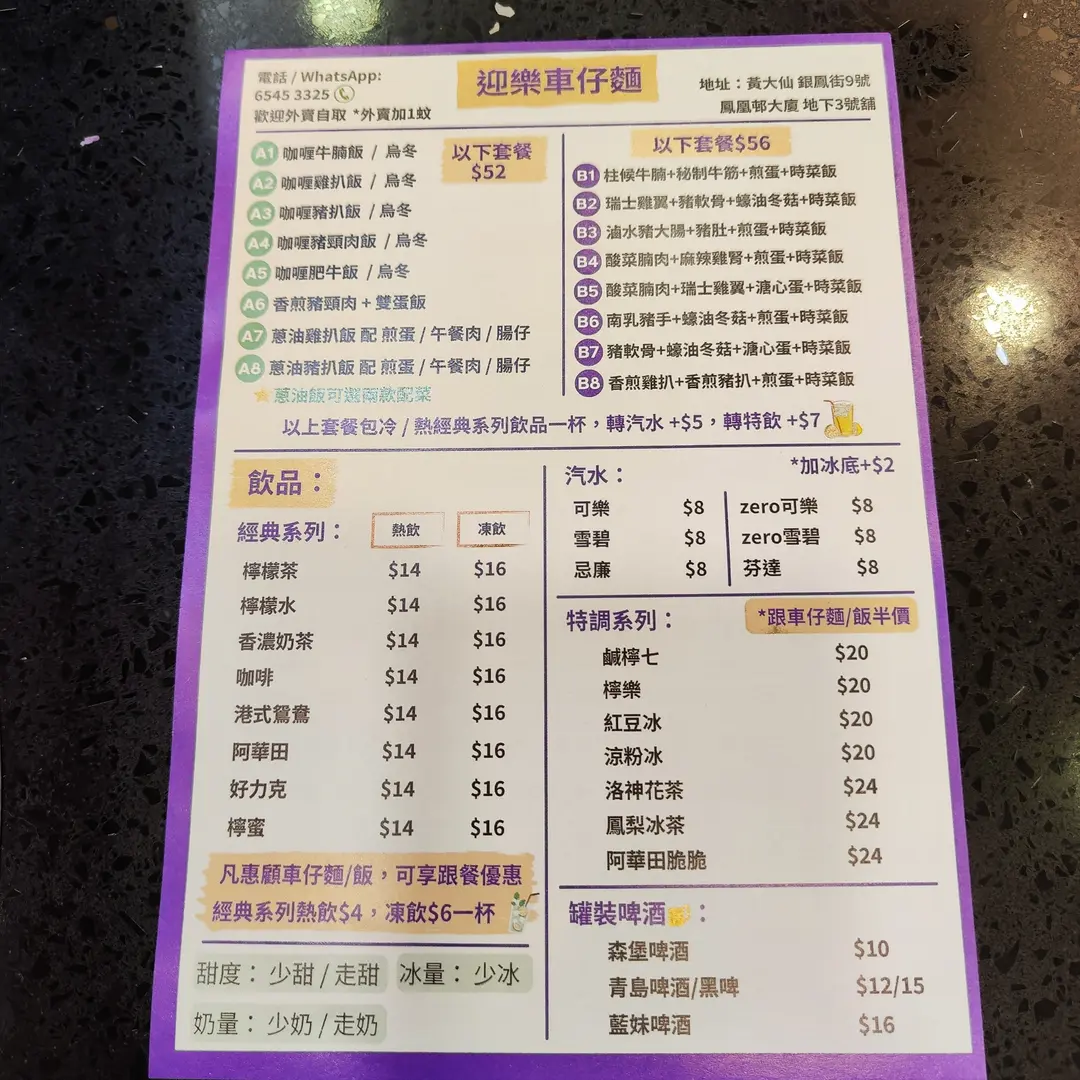 電話 / WhatsApp:
6545 3325
歡迎外賣自取 *外賣加1蚊
迎樂車仔麵
地址：黃大仙 銀鳳街9號
鳳凰邨大廈 地下3號舖
以下套餐
$52
A1 咖喱牛腩飯 / 烏冬
A2 咖喱雞扒飯 / 烏冬
A3 咖喱豬扒飯 / 烏冬
A4 咖喱豬頸肉飯 / 烏冬
A5 咖喱肥牛飯 / 烏冬
A6 香煎豬頸肉 + 雙蛋飯
A7 蔥油雞扒飯 配 煎蛋 / 午餐肉 / 腸仔
A8 蔥油豬扒飯 配 煎蛋 / 午餐肉 / 腸仔
蔥油飯可選兩款配菜
以下套餐$56
B1 柱候牛腩+秘制牛筋+煎蛋+時菜飯
B2 瑞士雞翼+豬軟骨+蠔油冬菇+時菜飯
B3 滷水豬大腸+豬肚+煎蛋+時菜飯
B4 酸菜腩肉+麻辣雞腎+煎蛋+時菜飯
B5 酸菜腩肉+瑞士雞翼+溏心蛋+時菜飯
B6 南乳豬手+蠔油冬菇+煎蛋+時菜飯
B7 豬軟骨+蠔油冬菇+溏心蛋+時菜飯
B8 香煎雞扒+香煎豬扒+煎蛋+時菜飯
以上套餐包冷 / 熱經典系列飲品一杯，轉汽水 +$5，轉特飲 +$7
飲品：
經典系列： 熱飲 凍飲
檸檬茶 $14 $16
檸檬水 $14 $16
香濃奶茶 $14 $16
咖啡 $14 $16
港式鴛鴦 $14 $16
阿華田 $14 $16
好力克 $14 $16
檸蜜 $14 $16
凡惠顧車仔麵/飯，可享跟餐優惠
經典系列熱飲$4，凍飲$6一杯
甜度： 少甜 / 走甜 冰量： 少冰
奶量： 少奶 / 走奶
汽水： *加冰底+$2
可樂 $8 zero可樂 $8
雪碧 $8 zero雪碧 $8
忌廉 $8 芬達 $8
特調系列： *跟車仔麵/飯半價
鹹檸七 $20
檸樂 $20
紅豆冰 $20
涼粉冰 $20
洛神花茶 $24
鳳梨冰茶 $24
阿華田脆脆 $24
罐裝啤酒：
森堡啤酒 $10
青島啤酒/黑啤 $12/15
藍妹啤酒 $16